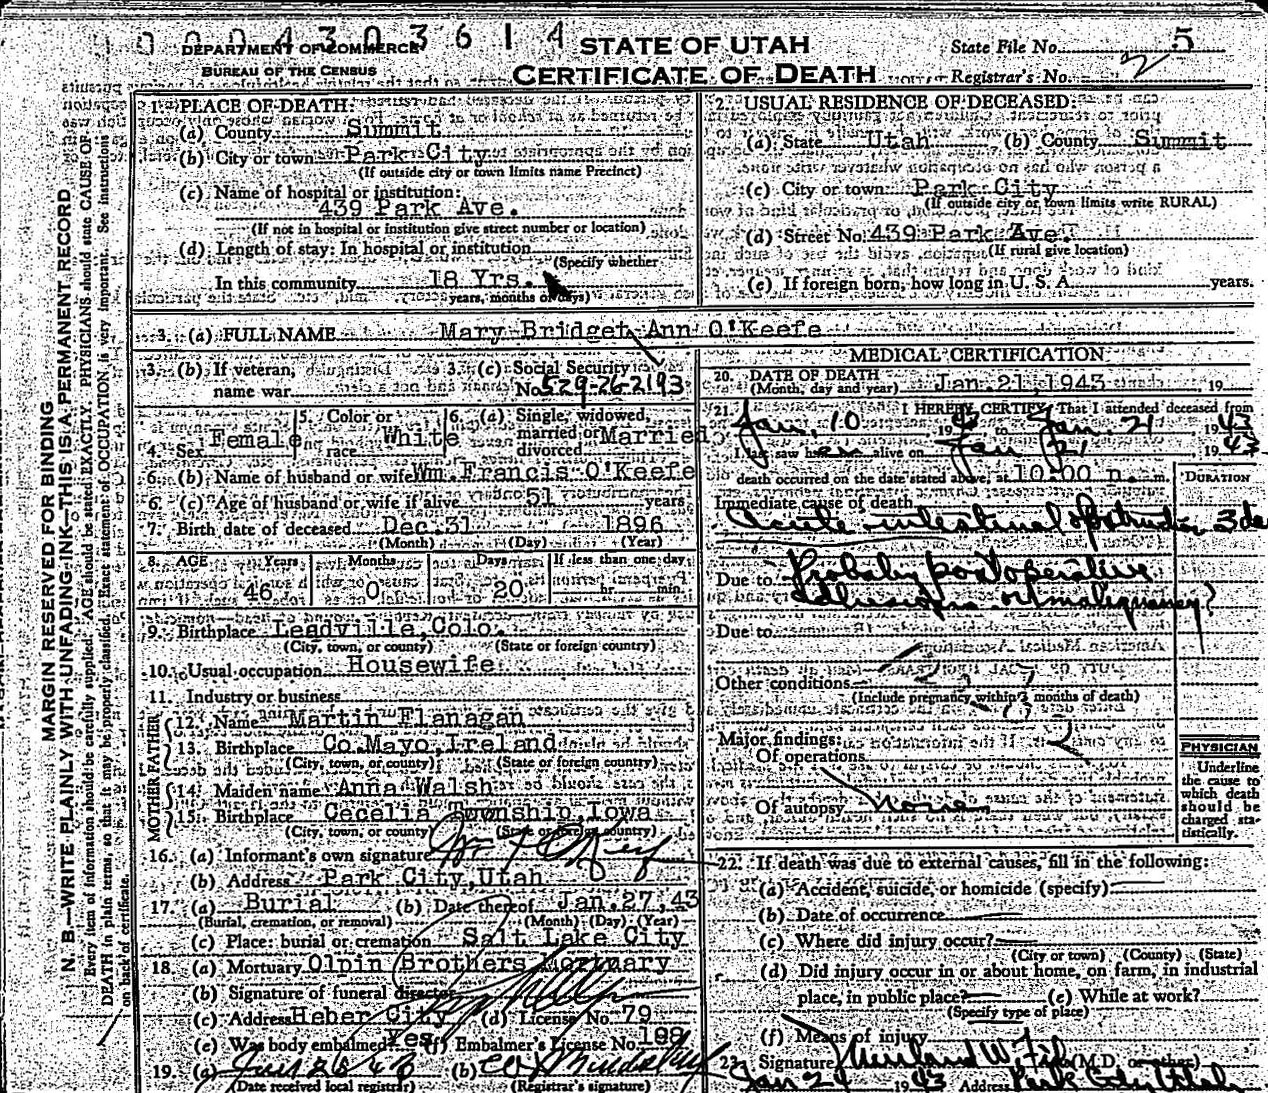 0 0 0 4 3 0 3 6 1 4
DEPARTMENT OF COMMERCE
BUREAU OF THE CENSUS
STATE OF UTAH
CERTIFICATE OF DEATH
State File No. 5
Registrar's No. 2
MARGIN RESERVED FOR BINDING
N. B.—WRITE PLAINLY WITH UNFADING INK—THIS IS A PERMANENT RECORD
Every item of information should be carefully supplied. AGE should be stated EXACTLY. PHYSICIANS should state CAUSE OF
DEATH in plain terms, so that it may be properly classified. Exact statement of OCCUPATION is very important. See instructions
on back of certificate.
1. PLACE OF DEATH:
(a) County Summit
(b) City or town Park City
(If outside city or town limits name Precinct)
(c) Name of hospital or institution:
439 Park Ave.
(If not in hospital or institution give street number or location)
(d) Length of stay: In hospital or institution
(Specify whether
In this community 18 Yrs.
years, months or days)
2. USUAL RESIDENCE OF DECEASED:
(a) State Utah (b) County Summit
(c) City or town Park City
(If outside city or town limits write RURAL)
(d) Street No. 439 Park Ave.
(If rural give location)
(e) If foreign born, how long in U. S. A. years.
3. (a) FULL NAME Mary Bridget Ann O'Keefe
3. (b) If veteran,
name war
3. (c) Social Security
No. 529-26-2193
4. Sex Female
5. Color or
race White
6. (a) Single, widowed,
married or
divorced Married
6. (b) Name of husband or wife Wm. Francis O'Keefe
6. (c) Age of husband or wife if alive 51 years
7. Birth date of deceased Dec. 31 1896
(Month) (Day) (Year)
8. AGE Years Months Days If less than one day
46 0 20 hr. min.
9. Birthplace Leadville, Colo.
(City, town, or county) (State or foreign country)
10. Usual occupation Housewife
11. Industry or business
FATHER
12. Name Martin Flanagan
13. Birthplace Co. Mayo, Ireland
(City, town, or county) (State or foreign country)
MOTHER
14. Maiden name Anna Walsh
15. Birthplace Cecelia Township, Iowa
(City, town, or county) (State or foreign country)
16. (a) Informant's own signature Wm F O'Keefe
(b) Address Park City, Utah
17. (a) Burial (b) Date thereof Jan. 27, 43
(Burial, cremation, or removal) (Month) (Day) (Year)
(c) Place: burial or cremation Salt Lake City
18. (a) Mortuary Olpin Brothers Mortuary
(b) Signature of funeral director
(c) Address Heber City (d) License No. 79
(e) Was body embalmed? Yes (f) Embalmer's License No. 188
19. (a) Jan 26 43 (b)
(Date received local registrar) (Registrar's signature)
MEDICAL CERTIFICATION
20. DATE OF DEATH
(Month, day and year) Jan. 21, 1943 , 19
21. I HEREBY CERTIFY That I attended deceased from
Jan. 10 1943 to Jan. 21 1943
I last saw her alive on Jan 21 1943
death occurred on the date stated above, at 10:00 p. m.
DURATION
Immediate cause of death
Acute intestinal obstruction 3 da
Due to Probably postoperative
adhesions or malignancy?
Due to
Other conditions
(Include pregnancy within 3 months of death)
Major findings:
Of operations
Of autopsy None
PHYSICIAN
Underline
the cause to
which death
should be
charged sta-
tistically.
22. If death was due to external causes, fill in the following:
(a) Accident, suicide, or homicide (specify)
(b) Date of occurrence
(c) Where did injury occur?
(City or town) (County) (State)
(d) Did injury occur in or about home, on farm, in industrial
place, in public place? (e) While at work?
(Specify type of place)
(f) Means of injury
23. Signature (M.D. or other)
Jan 24 1943 Address Park City Utah